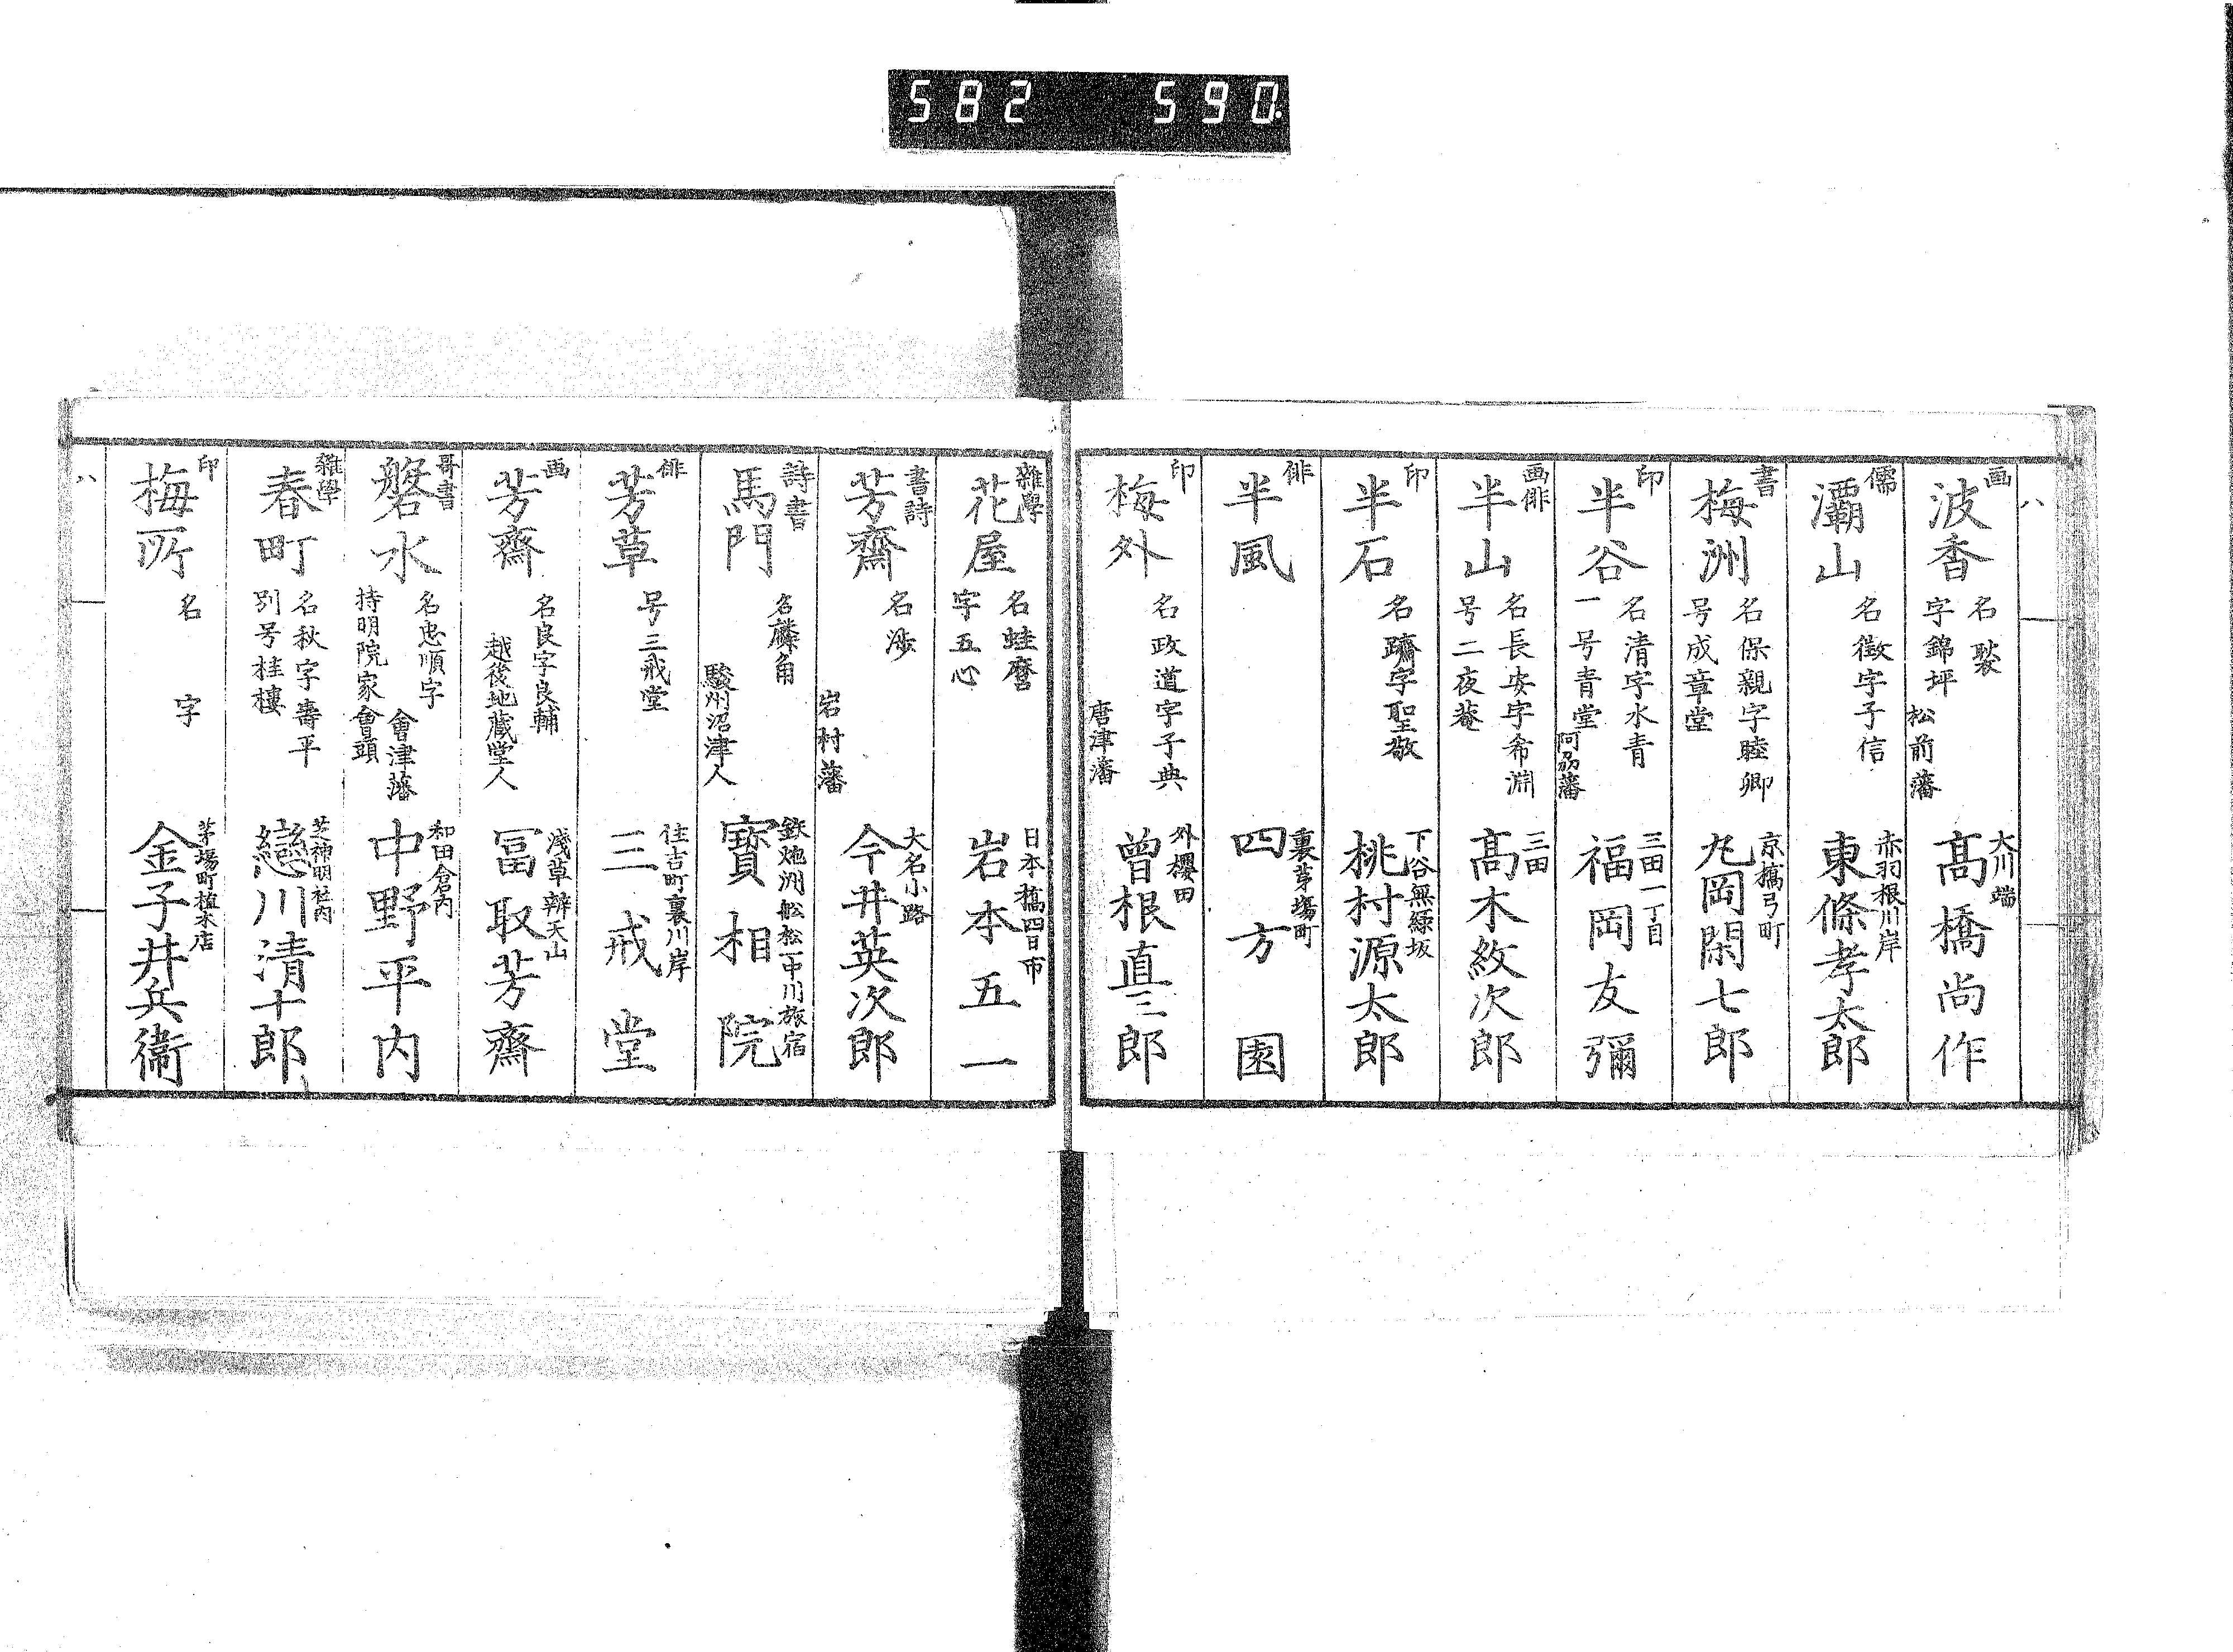 582 590
八
画
波香
名裝
字錦坪
松前藩
大川端
髙橋尚作
儒
灞山
名徴字子信
赤羽根川岸
東條孝太郎
書
梅洲
名保親字睦卿
号成章堂
京橋弓町
丸岡閑七郎
印
半谷
名清字水青
一号青堂
阿州藩
三田一丁目
福岡友彌
画俳
半山
名長安字希淵
号二夜菴
三田
髙木紋次郎
印
半石
名躋字聖敬
下谷無縁坂
桃村源太郎
俳
半風
裏茅場町
四方園
印
梅外
名政道字子典
唐津藩
外櫻田
曽根直三郎
雜學
花屋
名蛙麿
字五心
日本橋四日市
岩本五一
書詩
芳齋
名渉
岩村藩
大名小路
今井英次郎
詩書
馬門
名麟角
駿州沼津人
鉄炮洲舩松一中川旅宿
寳相院
俳
芳草
号三戒堂
住吉町裏川岸
三戒堂
画
芳齋
名良字良輔
越後地蔵堂人
淺草辨天山
冨取芳齋
哥書
磐水
名忠順字
會津藩
持明院家會頭
和田倉内
中野平内
雜學
春町
名秋字壽平
別号桂樓
芝神明社内
戀川清十郎
印
梅所
名 字
茅場町植木店
金子井兵衞
八